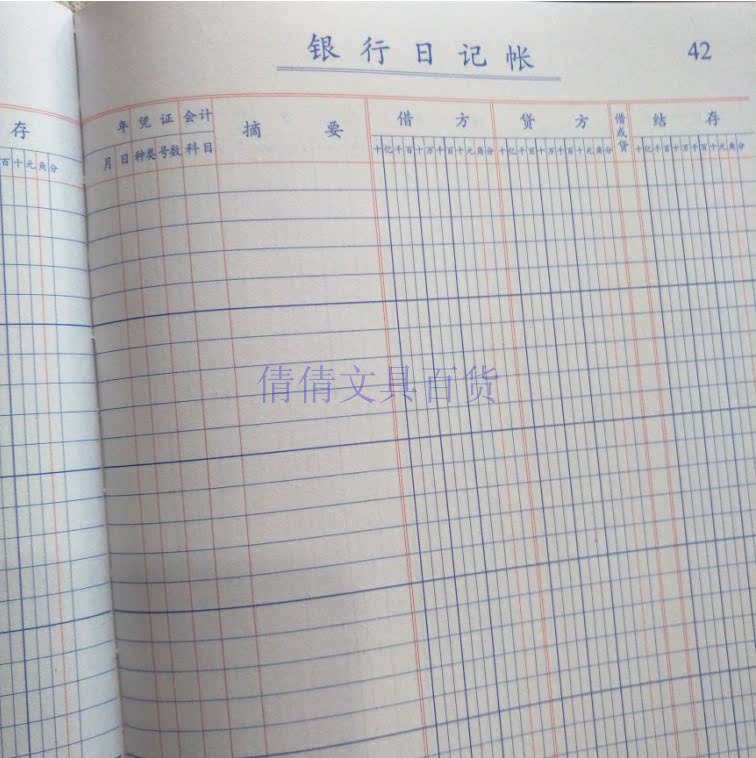 银行日记帐
42
存
年 凭证 会计 摘要 借方 贷方 借或贷 结存
百十元角分
月 日 种类 号数 科目 十亿千百十万千百十元角分 十亿千百十万千百十元角分 十亿千百十万千百十元角分
倩倩文具百货